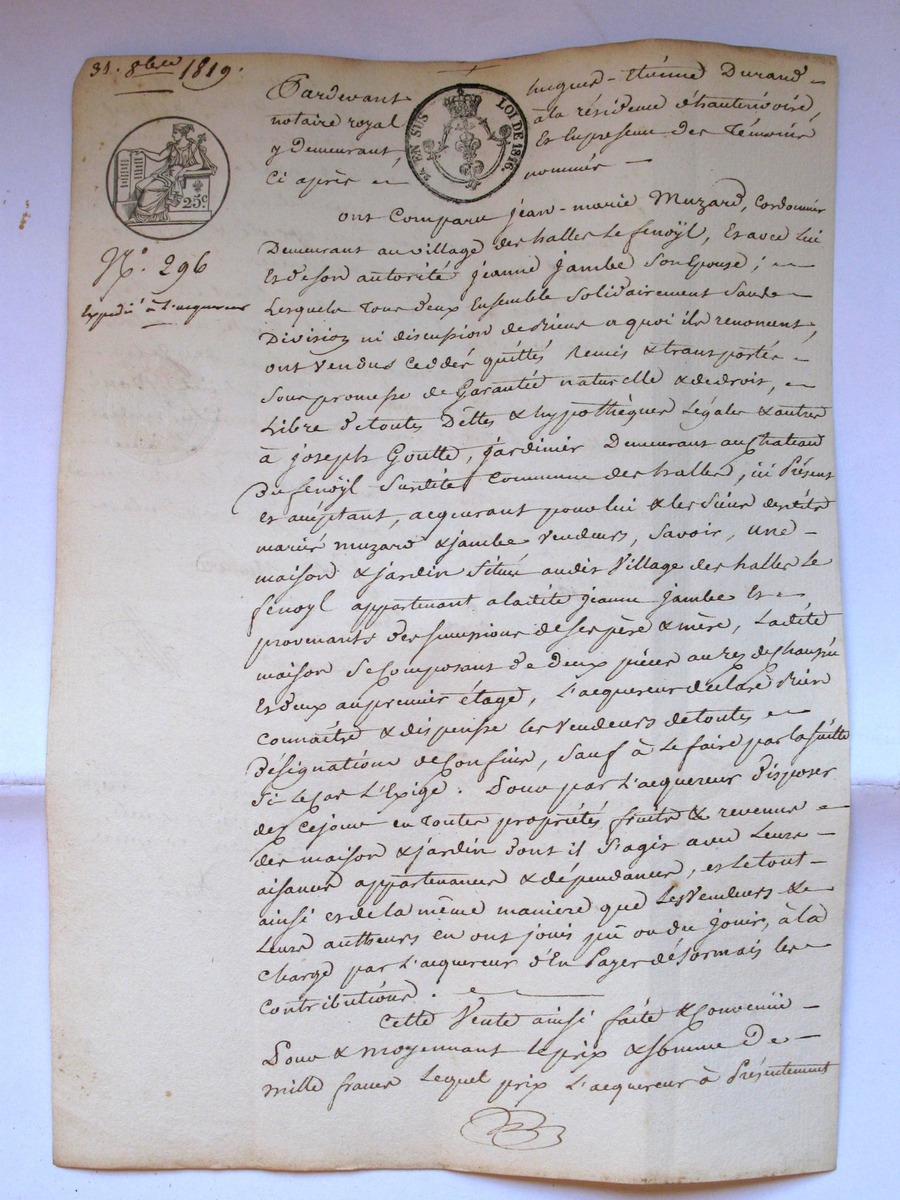 31. 8bre 1819.
Pardevant hugues-Etienne Durand
notaire royal à la résidence d'hauterivoire
y Demeurant, Et En presence des Témoins
Ci après nommés
EN SUS LOI DE 1816.
25c
No. 296
Expedié à L'acquereur
ont Comparu jean-marie Muzard, Cordonnier
Demeurant au village des halles Le fenoÿl, Et avec lui
Et de son autorité jeanne jambe Son Epouse;
Lesquels Tous deux Ensemble Solidairement Sans
Division ni discussion de Biens a quoi ils renoncent,
ont vendus ceddés quittés Remis & transportés
Sous promesse de Garantie naturelle & de droit,
Libre de toutes Dettes & hypothèques Légales & autres
à joseph Goutte, jardinier Demeurant au Chateau
Du fenoÿl Susdite Commune des halles, ici Présent
Et acceptant, acquerant pour lui & les Siens desdits
mariés muzard & jambe vendeurs, Savoir, une
maison & jardin Situés audit Village des halles Le
fenoyl appartenant a ladite jeanne jambe Et
provenants des successions de Ses père & mère, Ladite
maison Se Composant de Deux pièces au rez de Chaussée
Et deux au premier étage, L'acquereur declare Bien
Connaître & dispense les Vendeurs de toutes
Désignations de Confins, Sauf à Le faire par la Suitte
Si le Cas L'Exige. Pour par L'acquereur Disposer
dez Cejour en Toutes propriétés fruits & revenus
des maison & jardin dont il S'agit avec Leurs
aisances appartenances & dépendances, et Le tout
ainsi et de la même manière que Les Vendeurs &
Leurs autheurs en ont jouis pû ou du jouir, à la
Charge par L'acquereur d'En Payer désormais les
Contributions.
Cette Vente ainsi faite & Convenüe
Pour & moyennant le prix & Somme De
mille francs Lequel prix L'acquereur à Présentement